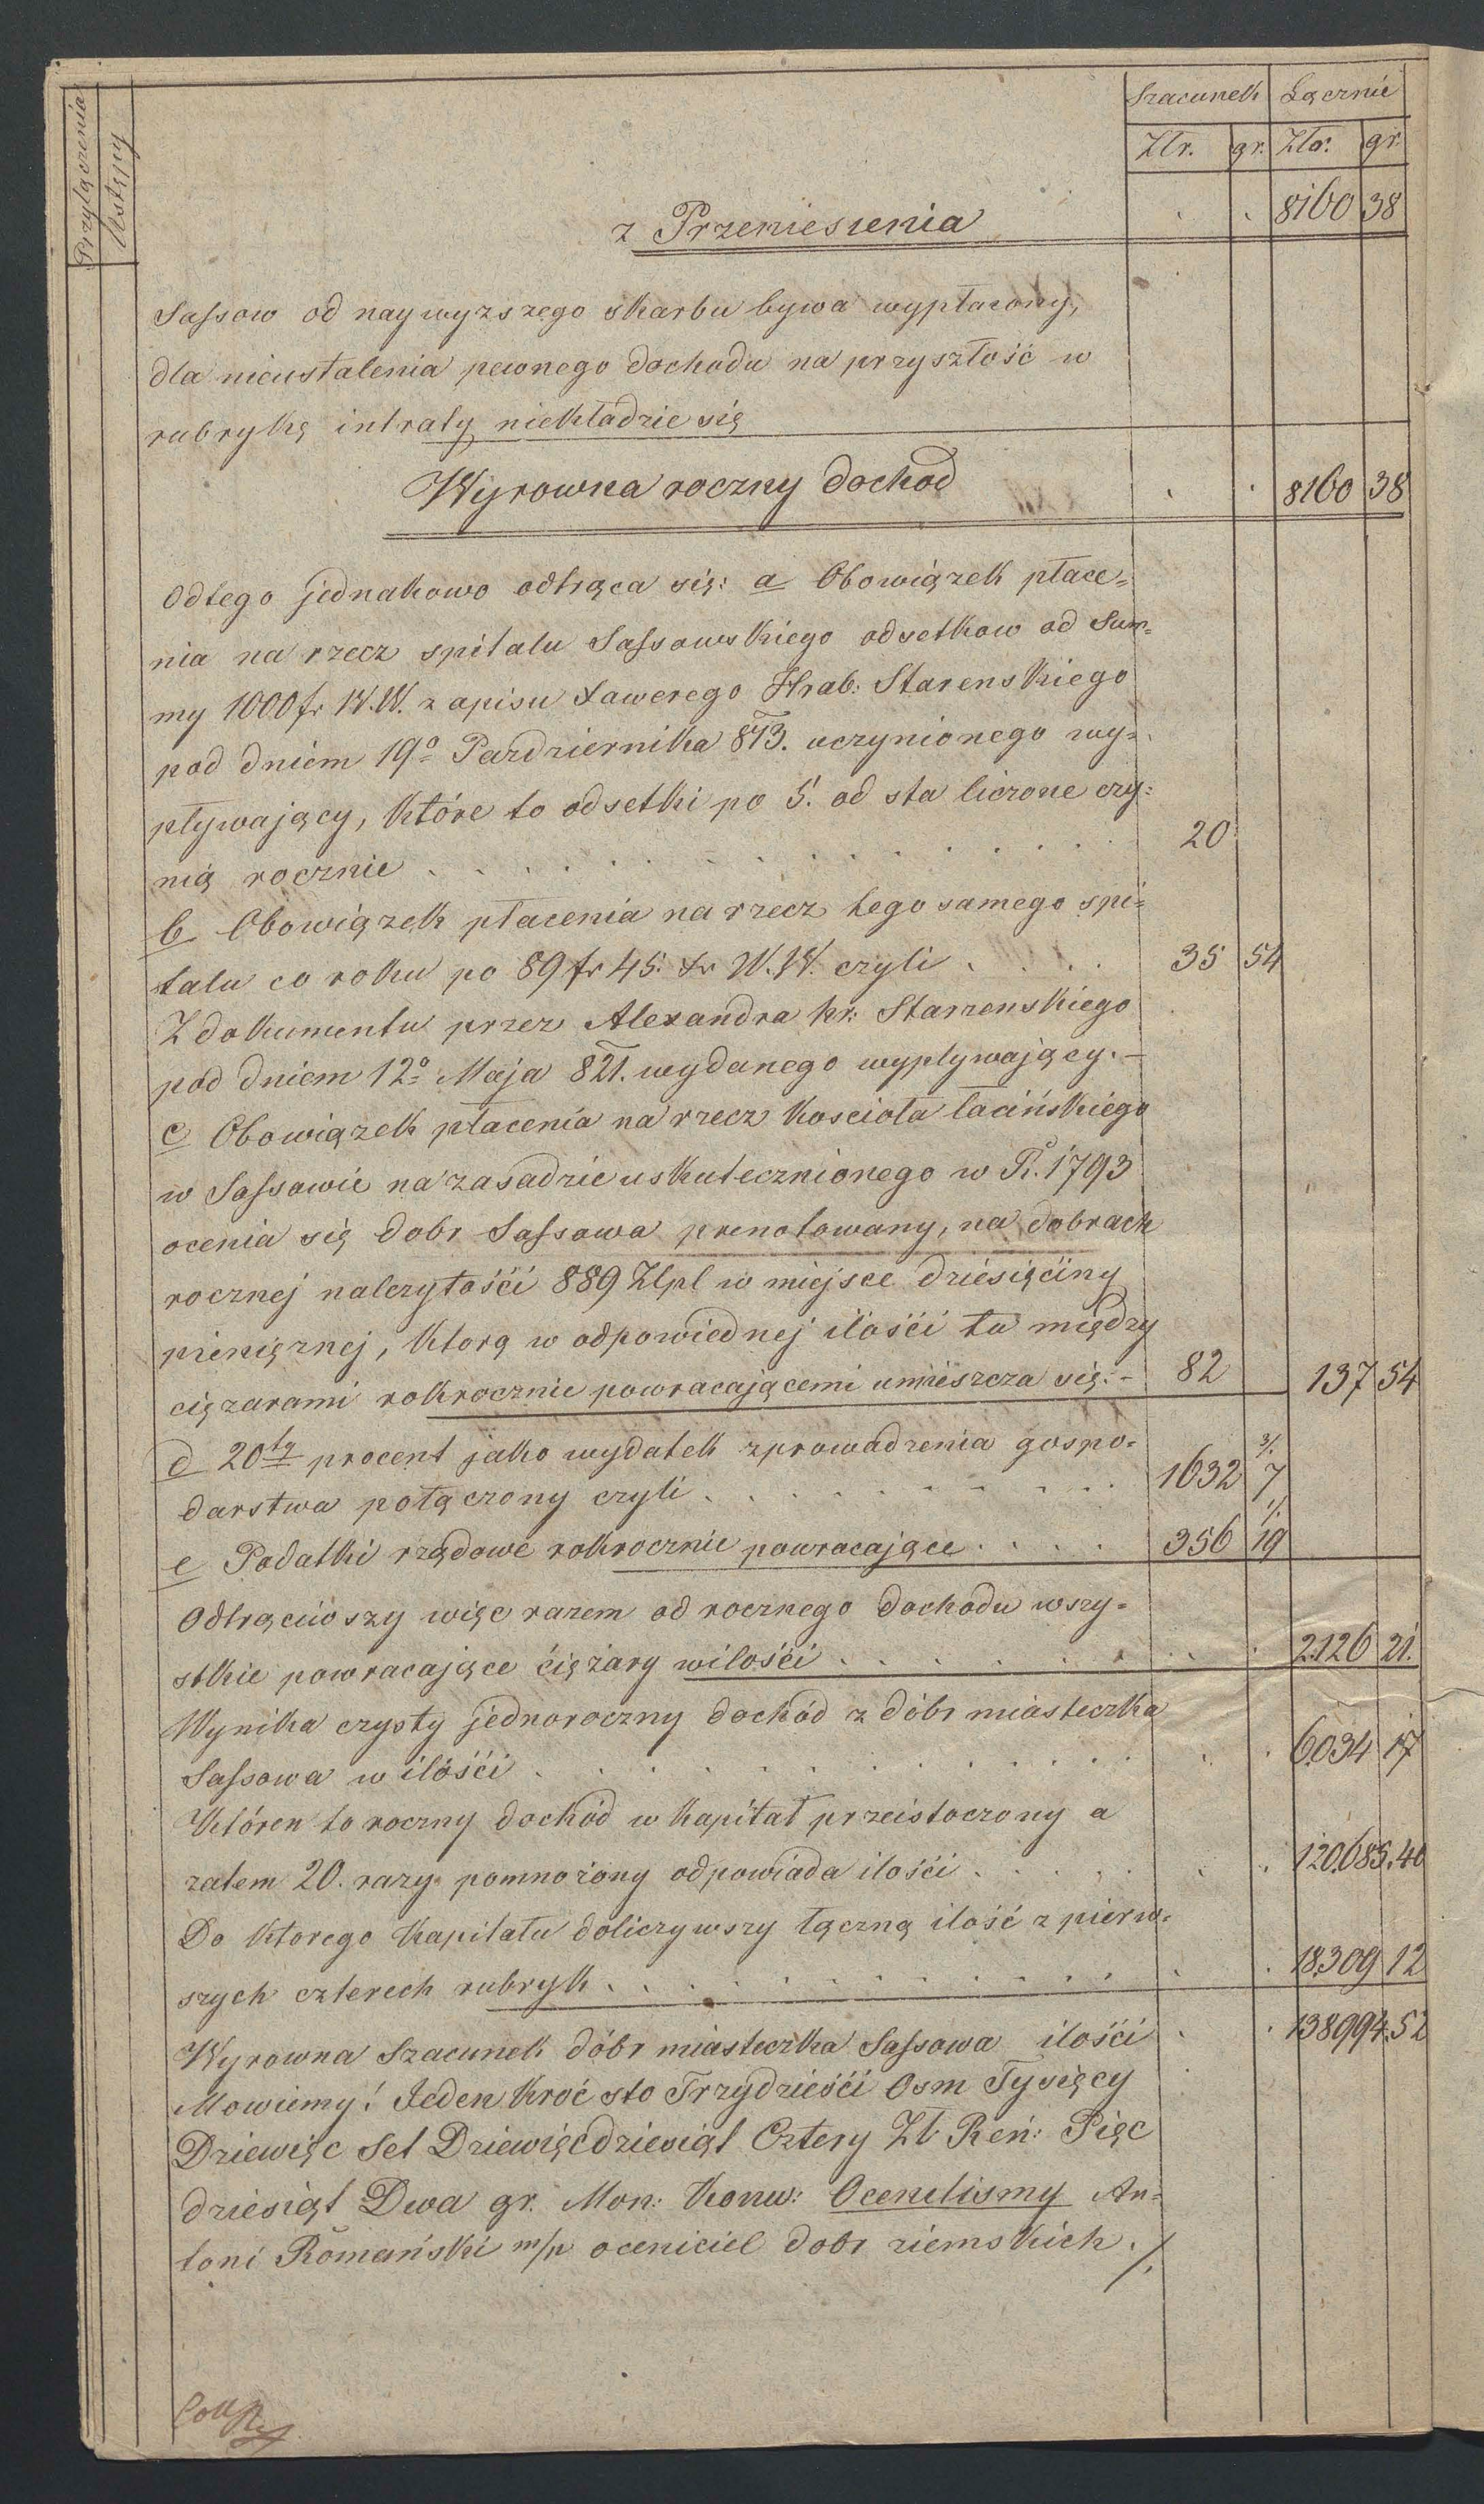 Przyłączenia Ustępy Szacunek Łącznie
Złr. gr. Złr. gr.
z Przeniesienia 8160 38
Sassow od naywyzszego skarbu bywa wypłacony,
dla nieustalenia pewnego dochodu na przyszłość w
rubrykę intraty niekładzie się
Wyrowna roczny dochod 8160 38
Odtego jednakowo odtrąca się: a Obowiązek płace=
nia na rzecz spitalu Sassowskiego odsetkow od Sum=
my 1000 fr W.W. z apisu Xawerego Hrab: Starenskiego
pod dniem 19o Pazdziernika 813. uczynionego wy=
pływający, które to odsetki po 5. od sta liczone czy=
nią rocznie 20
b Obowiązek płacenia na rzecz tego samego spi=
talu co roku po 89 fr 45. xr W.W. czyli 35 54
Z dokumentu przez Alexandra hr: Starzenskiego
pod dniem 12o Maja 821. wydanego wypływający. -
c Obowiązek płacenia na rzecz Kościoła łacińskiego
w Sassowie na zasadzie uskutecznionego w R. 1793
ocenia się dobr Sassowa prenotowany, na dobrach
rocznej nalezytośći 889 Złpl w miejsce dziesięćiny
pienięznej, ktorą w odpowiednej ilośći tu między
cięzarami rokrocznie powracającemi umieszcza się: - 82 137 54
d 20ty procent jako wydatek zprowadzenia gospo=
darstwa połączony czyli 1632 7 3/.
e Podatki rządowe rokrocznie powracające 356 19 1/.
Odtrąciwszy więc razem od rocznego dochodu wszy=
stkie powracające ciężary wilośći 2126 21.
Wynika czysty jednoroczny dochód z dóbr miasteczka
Sassowa w ilośći 6034 17
Któren to roczny dochód w kapitał przeistoczony a
zatem 20. razy pomnożony odpowiada ilośći 120,685.40
Do ktorego Kapitału doliczywszy łączną ilość z pierw=
szych czterech rubryk 18,309 12
Wyrowna Szacunek dóbr miasteczka Sassowa ilośći 138,994.52
Mowiemy! Jeden kroć sto Trzydzieśći Osm Tysięcy
Dziewięc Set Dziewięćdziesiąt Cztery Zł: Reń: Pięc
dziesiąt Dwa gr. Mon: Konw: Ocenilismy An=
toni Romański m/p oceniciel dobr ziemskich ./.